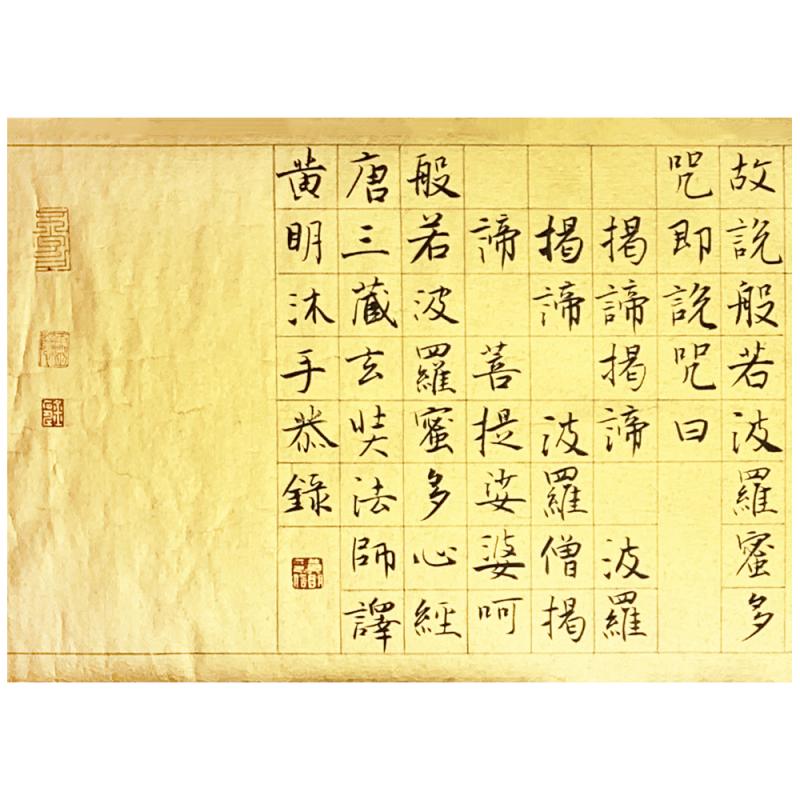 故説般若波羅蜜多
呪即説呪曰
揭諦揭諦 波羅
揭諦 波羅僧揭
諦 菩提娑婆呵
般若波羅蜜多心經
唐三藏玄奘法師譯
黄明沐手恭錄